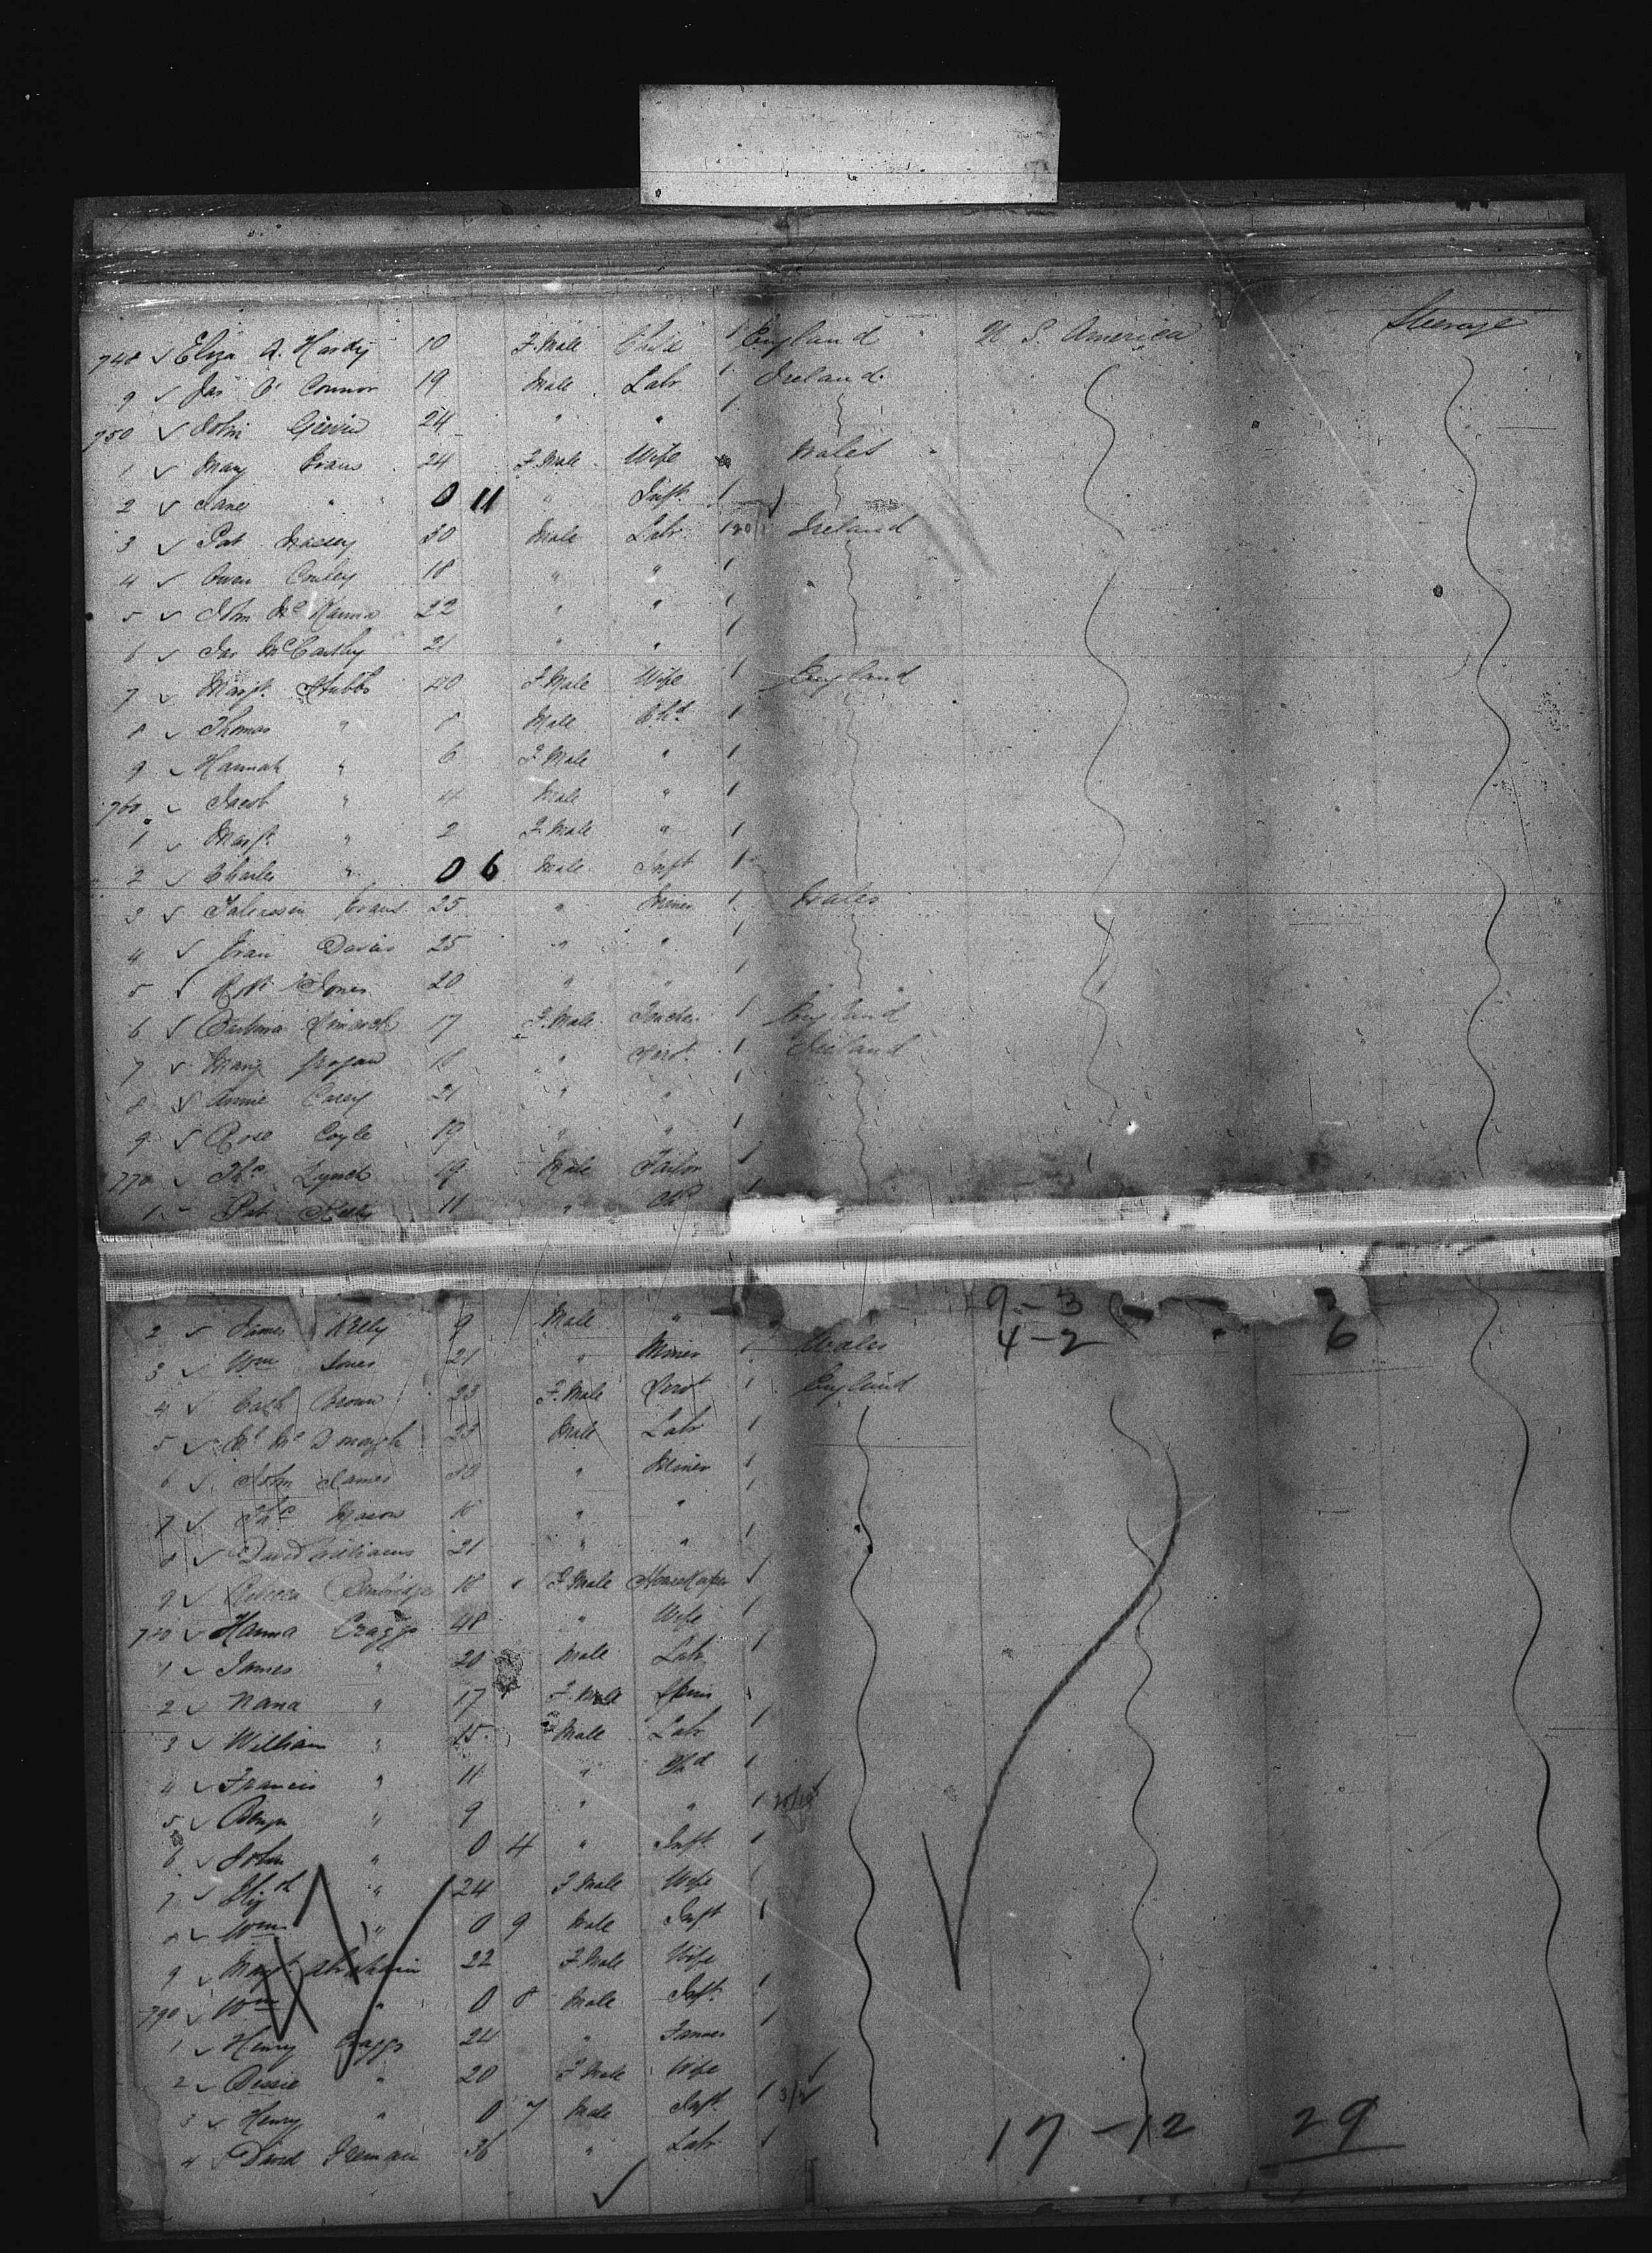 748 ✓ Eliza A. Hardy 10 F.Male Child 1 England U S. America Steerage
9 ✓ Jas O'Connor 19 Male Labr 1 Ireland
750 ✓ John 24 " " 1
1 ✓ Mary Evans 24 F.Male Wife Wales
2 ✓ Jane " 0 11 " Inft 1
3 ✓ Pat 30 Male Labr 1 Ireland
4 ✓ Owen Conley 18 " " 1
5 ✓ John McKanna 22 " " 1
6 ✓ Jas McCarthy 21 " " 1
7 ✓ Margt. Stubbs 40 F.Male Wife 1 England
8 ✓ Thomas " 8 Male Chd 1
9 ✓ Hannah " 6 F.Male " 1
760 ✓ Jacob " 4 Male " 1
1 ✓ Margt. " 2 F.Male " 1
2 ✓ Charles " 0 6 Male Inft 1
3 ✓ Evans 25 " Miner 1 Wales
4 ✓ Evan Davies 25 " " 1
5 ✓ Robt Jones 20 " " 1
6 ✓ Barbara 17 F.Male Teacher 1 England
7 ✓ Mary Grogan 18 " Servt 1 Ireland
8 ✓ Annie Carey 21 " " 1
9 ✓ Rose Coyle 19 " " 1
770 ✓ Thos Lynch 19 Male Tailor 1
1 Pat Kelly 11 " Chd
9-3
2 ✓ James Kelly 9 Male "
4-2 6
3 ✓ Wm Jones 21 " Miner 1 Wales
4 ✓ Cath Brown 23 F.Male Servt 1 England
5 ✓ McDonough 25 Male Labr 1
6 ✓ John James " Miner 1
7 ✓ Thos Mason 18 " " 1
8 ✓ David Williams 21 " " 1
9 ✓ Rebecca 18 F.Male Housekeeper 1
780 ✓ Hanna Craggs 48 " Wife 1
1 ✓ James " 20 Male Labr 1
2 ✓ Nana " 17 F.Male Spins 1
3 ✓ William " 15 Male Labr 1
4 ✓ Francis " 11 " Chd 1
5 ✓ Benjn " 9 " " 1
6 ✓ John " 0 4 " Inft 1
7 ✓ Elizth " 24 F.Male Wife 1
8 ✓ Wm " 0 9 Male Inft 1
9 ✓ Margt Abraham 22 F.Male Wife
790 ✓ Wm " 0 8 Male Inft 1
1 ✓ Henry Craggs 24 " Farmer 1
2 ✓ Bessie " 20 F.Male Wife
3 ✓ Henry " 0 7 Male Inft 1
4 ✓ David 36 " Labr 1
17-12 29